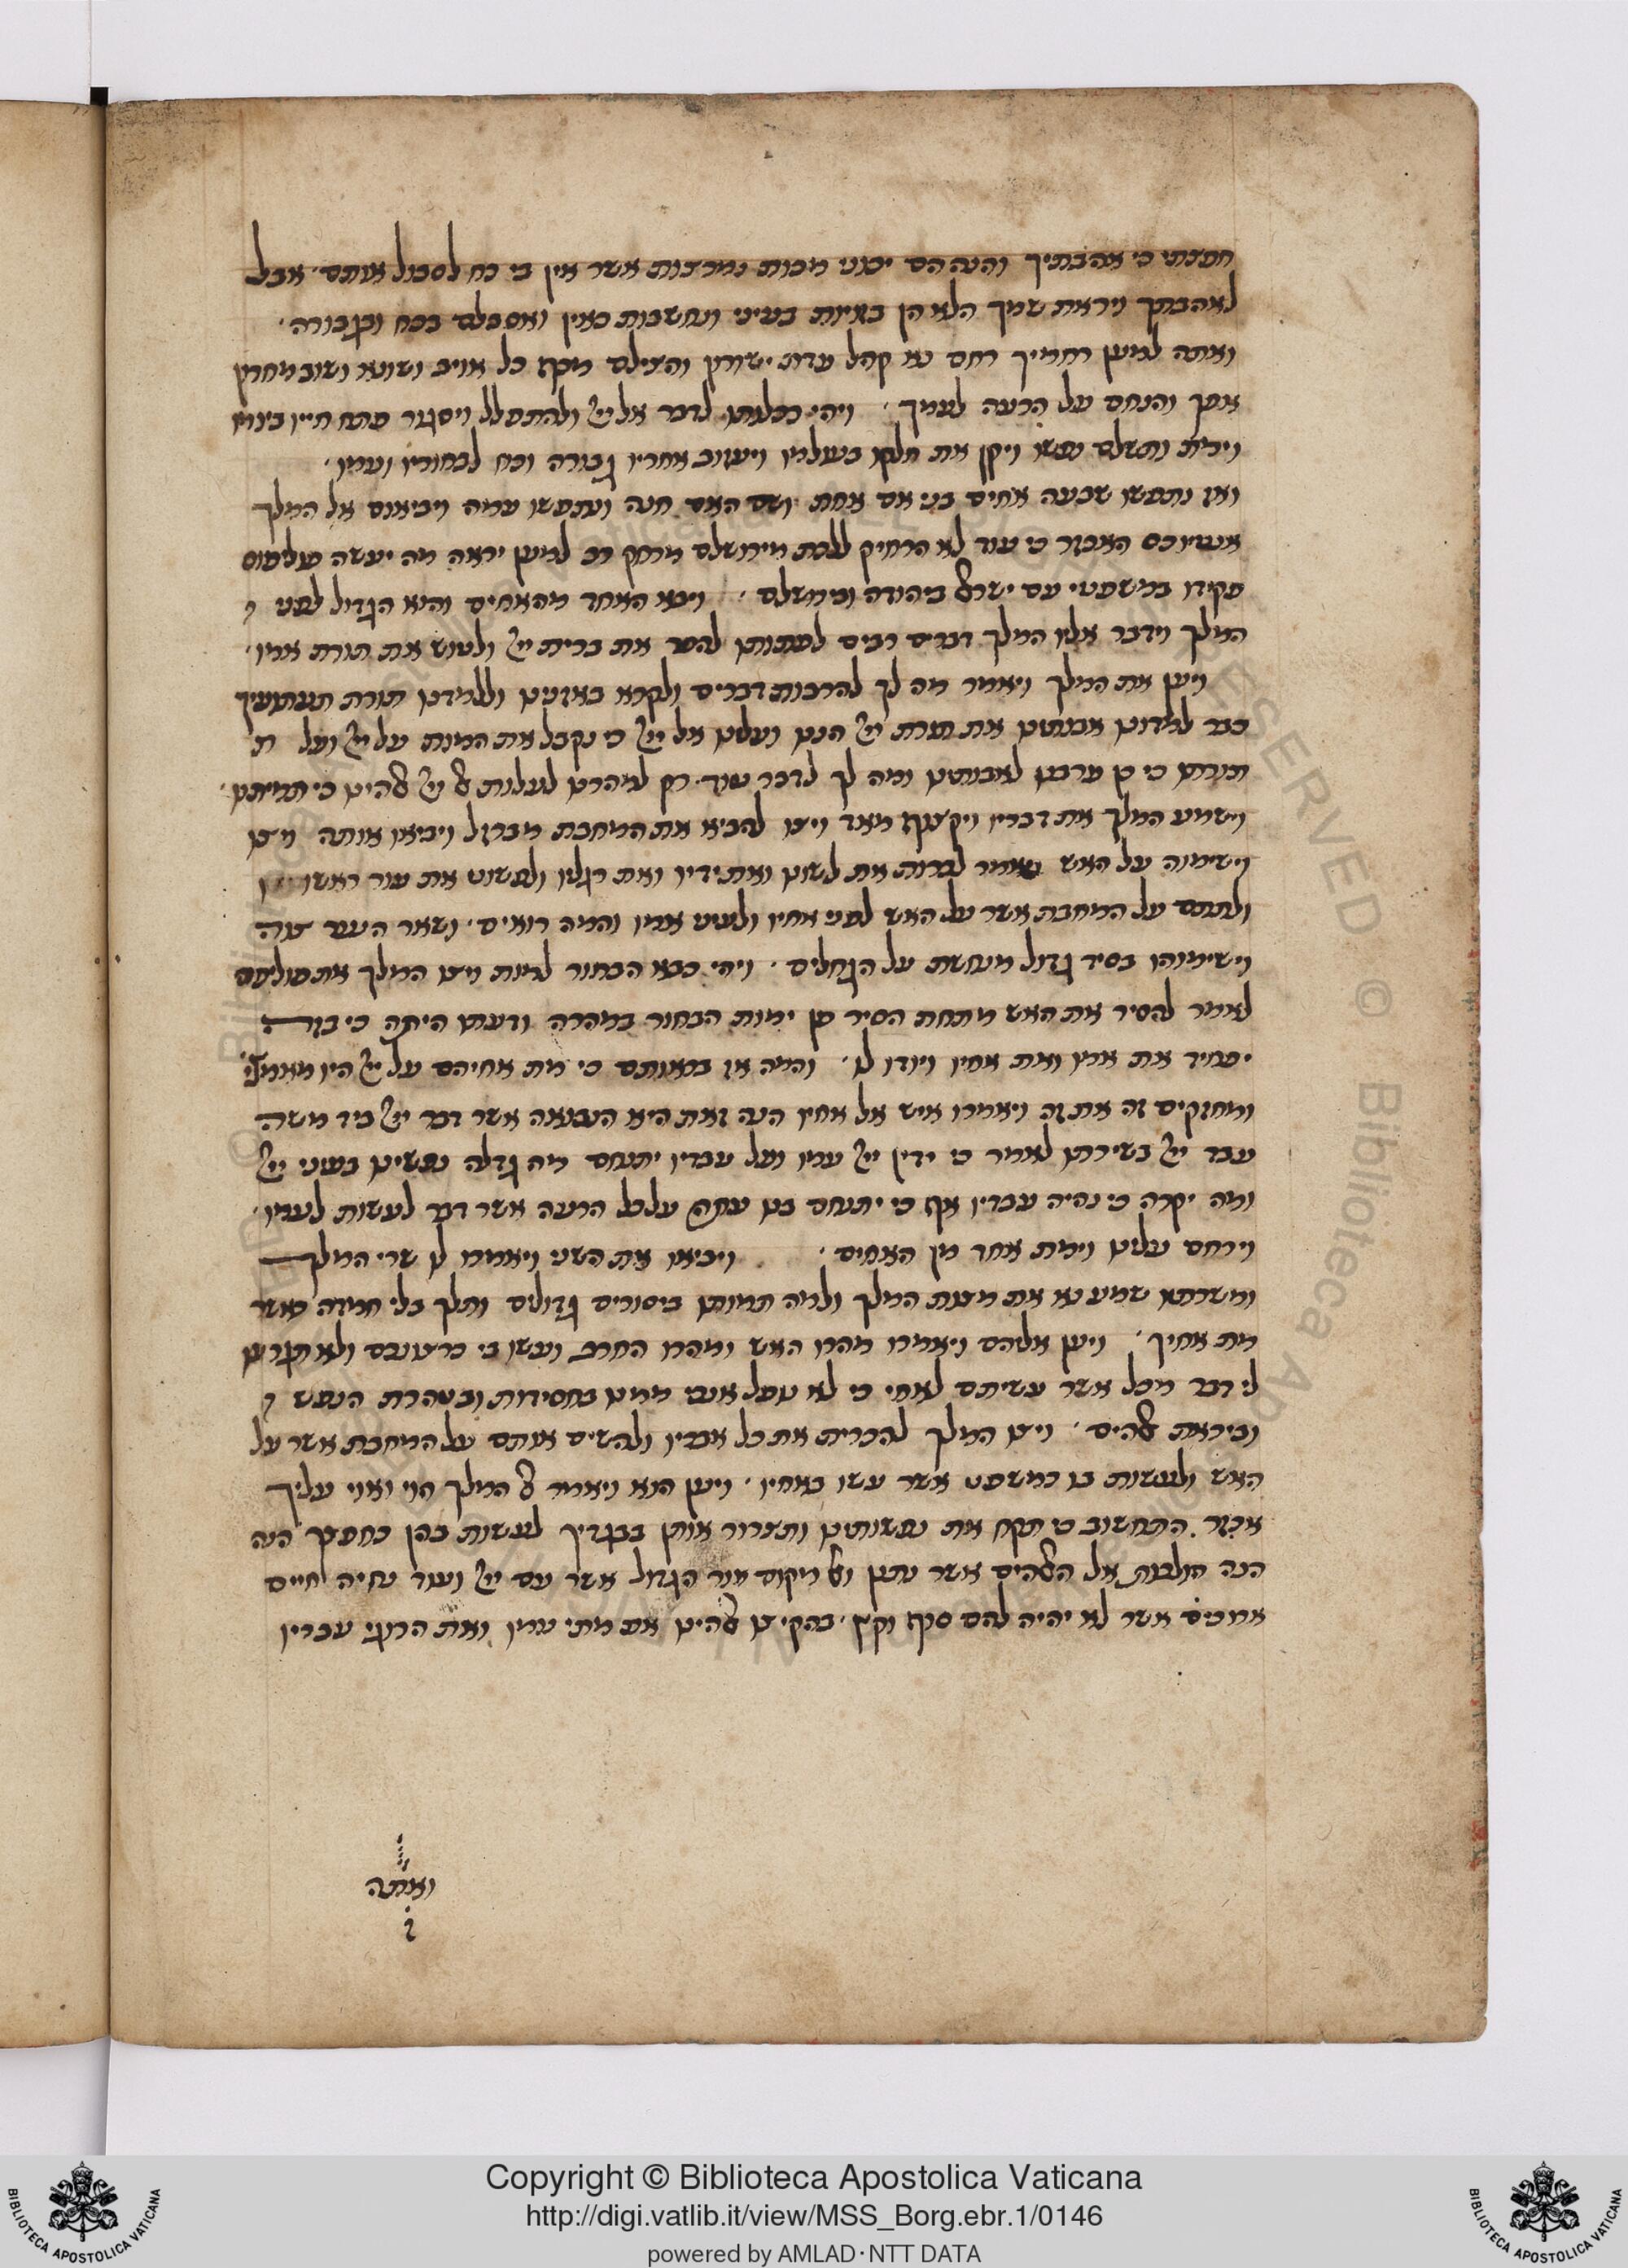 חפצתי כי אהבתיך והנה הם יכוני מכות נמרצות אשר אין בי כח לסבול אותם אבל
לאהבתך ויראת שמך הלא הן בזויות בעיני ונחשבות כאין ואסבלם בכח ובגבורה
ואתה למען רחמיך רחם נא קהל עדת ישורון והצילם מכף כל אויב ושונא ושוב מחרון
אפך והנחם על הרעה לעמך ויהי ככלותו לדבר אל ייי ולהתפלל ויסגור פתח חייו
ותשלם נפשו ויקן את חלקו בעולמו ויעזוב אחריו גבורה וכח לבחוריו ועמו
ואז נתפשו שבעה אחים בני אם אחת ושם האם חנה ונתפשו עמה ויביאום אל המלך
אנטיוכס האכזר כי עוד לא הרחיק ללכת מירושלם מרחק רב למען יראה מה יעשה פוליפוס
פקידו במשפטי עם ישראל ביהודה ובירושלם ויבא האחד מהאחים והוא הגדול לפני
המלך וידבר אליו המלך דברים רבים לפתותו להפר את ברית ייי ולטוש את תורת אמו
ויען את המלך ויאמר מה לך להרבות דברים ולקרא באזנינו וללמדנו תורת תעתועיך
כבר למדונו אבותינו את תורת ייי הננו ועלינו אל ייי כי נקבל את המות על ייי ועל
תורתו כי כן ערבנו לאבותינו ומה לך לדבר עוד רק למהרנו לעלות אל ייי אלהינו כי תמיתנו
וישמע המלך את דבריו ויקצוף מאד ויצו להביא את המחבת מברזל ויביאו אותה ויצו
וישימוה על האש ויאמר לכרות את לשונו ואת ידיו ואת רגליו ולפשוט את עור ראשו
ולתתם על המחבת אשר על האש לפני אחיו ולעיני אמו והמה רואים ושאר העם צוה
וישימוהו בסיר גדול מנחשת על הגחלים ויהי כבא הבחור למות ויצו המלך את פוליפוס
לאמר להסיר את האש מתחת הסיר פן ימות הבחור במהרה ודעתו היתה כי בזה
יפחיד את אמו ואת אחיו ויודו לו והמה אז בראותם כי מת אחיהם על ייי היו מאמצי
ומחזקים זה את זה ויאמרו איש אל אחיו הנה זאת היא הנבואה אשר דבר ייי ביד משה
עבד ייי בשירתו לאמר כי ידין ייי עמו ועל עבדיו יתנחם מה גדלה נפשינו בעיני ייי
ומה יקרה כי נהיה עבדיו אף כי יתנחם בנו עתה על כל הרעה אשר דבר לעשות לעמו
וירחם עלינו וימת אחד מן האחים ויביאו את השני ויאמרו לו שרי המלך
ומשרתיו שמע נא את מצות המלך ולמה תמותו ביסורים גדולים ותלך בלי חמדה כאשר
מת אחיך ויען אליהם ויאמרו מהרו האש ומהרו החרב ועשו בי כרצונכם ולא תגרעו
לי דבר מכל אשר עשיתם לאחי כי לא נופל אנכי ממנו בחסידות ובטהרת הנפש
וביראת אלהים ויצו המלך להכרית את כל אבריו ולהשים אותם על המחבת אשר על
האש ולעשות בו כמשפט אשר עשו באחיו ויען הוא ויאמר אל המלך הוי ואוי עליך
אכזר התחשוב כי תקח את נפשותינו ותצרור אותן בבגדיך לעשות בהן כחפצך הנה
הנה הולכות אל האלהים אשר נתנן ואל מקום אור הגדול אשר עם ייי ועוד נחיה חיים
ארוכים אשר לא יהיה להם סוף וקץ בהקיץ אלהינו את מתי עמו ואת הרוגי עבדיו
ואתה
Copyright © Biblioteca Apostolica Vaticana
http://digi.vatlib.it/view/MSS_Borg.ebr.1/0146
powered by AMLAD·NTT DATA